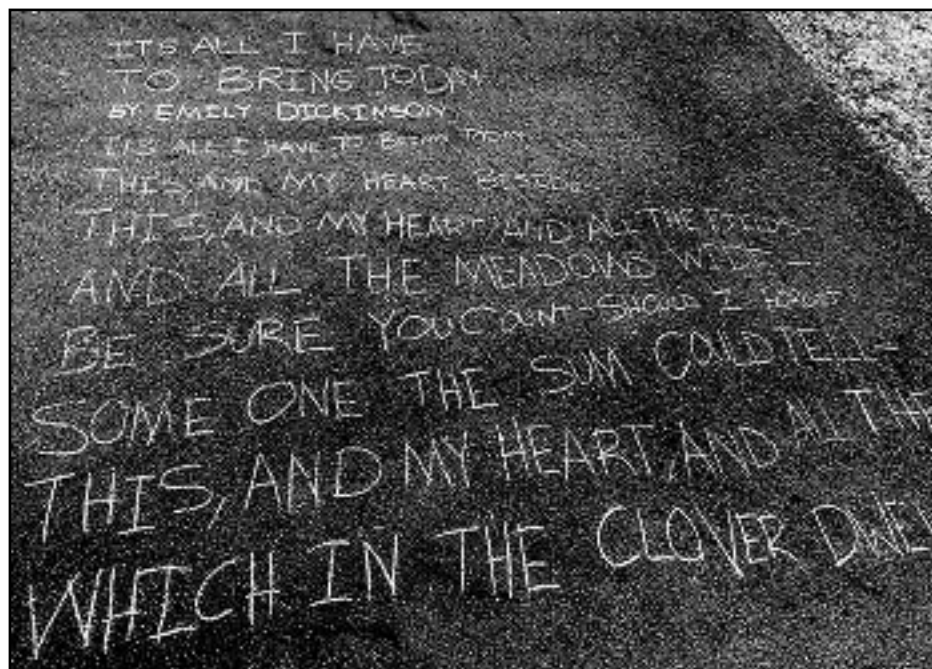 ITS ALL I HAVE
TO BRING TODAY
BY EMILY DICKINSON
ITS ALL I HAVE TO BRING TODAY
THIS, AND MY HEART BESIDE
THIS, AND MY HEART, AND ALL THE FIELDS-
AND ALL THE MEADOWS WIDE-
BE SURE YOU COUNT-SHOULD I FORGET
SOME ONE THE SUM COULD TELL-
THIS, AND MY HEART, AND ALL THE
WHICH IN THE CLOVER DWEL